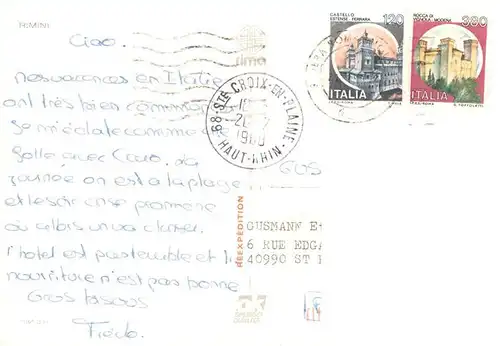 RIMINI
Ciao.
nos vacances en Italie
ont très bien commencé
Je m'éclate comme une
folle avec Caro. La
journée on est à la plage
et le soir on se promène
où alors on va danser.
l'hotel est pas terrible et la
nourriture n'est pas bonne
Gros bisous
CASTELLO
ESTENSE - FERRARA
120
ITALIA
ROCCA DI
VIGNOLA - MODENA
380
ITALIA
68 STE CROIX-EN-PLAINE
HAUT-RHIN
REEXPÉDITION
GUSMANN E
6 RUE EDGA
40990 ST